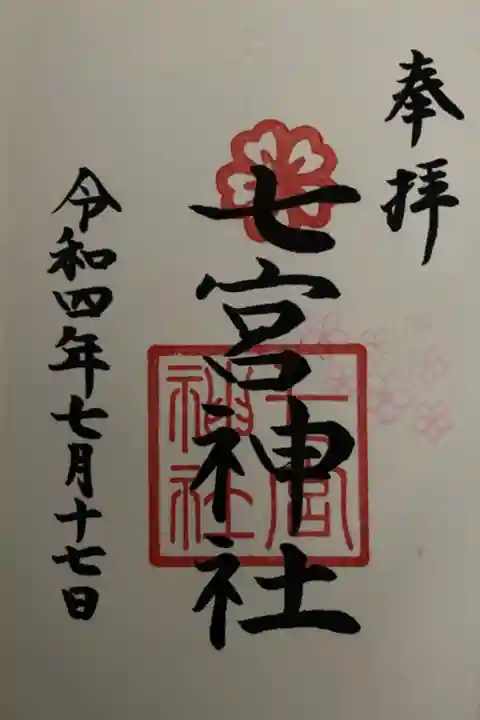 奉拝
七宮神社
七宮神社
令和四年七月十七日